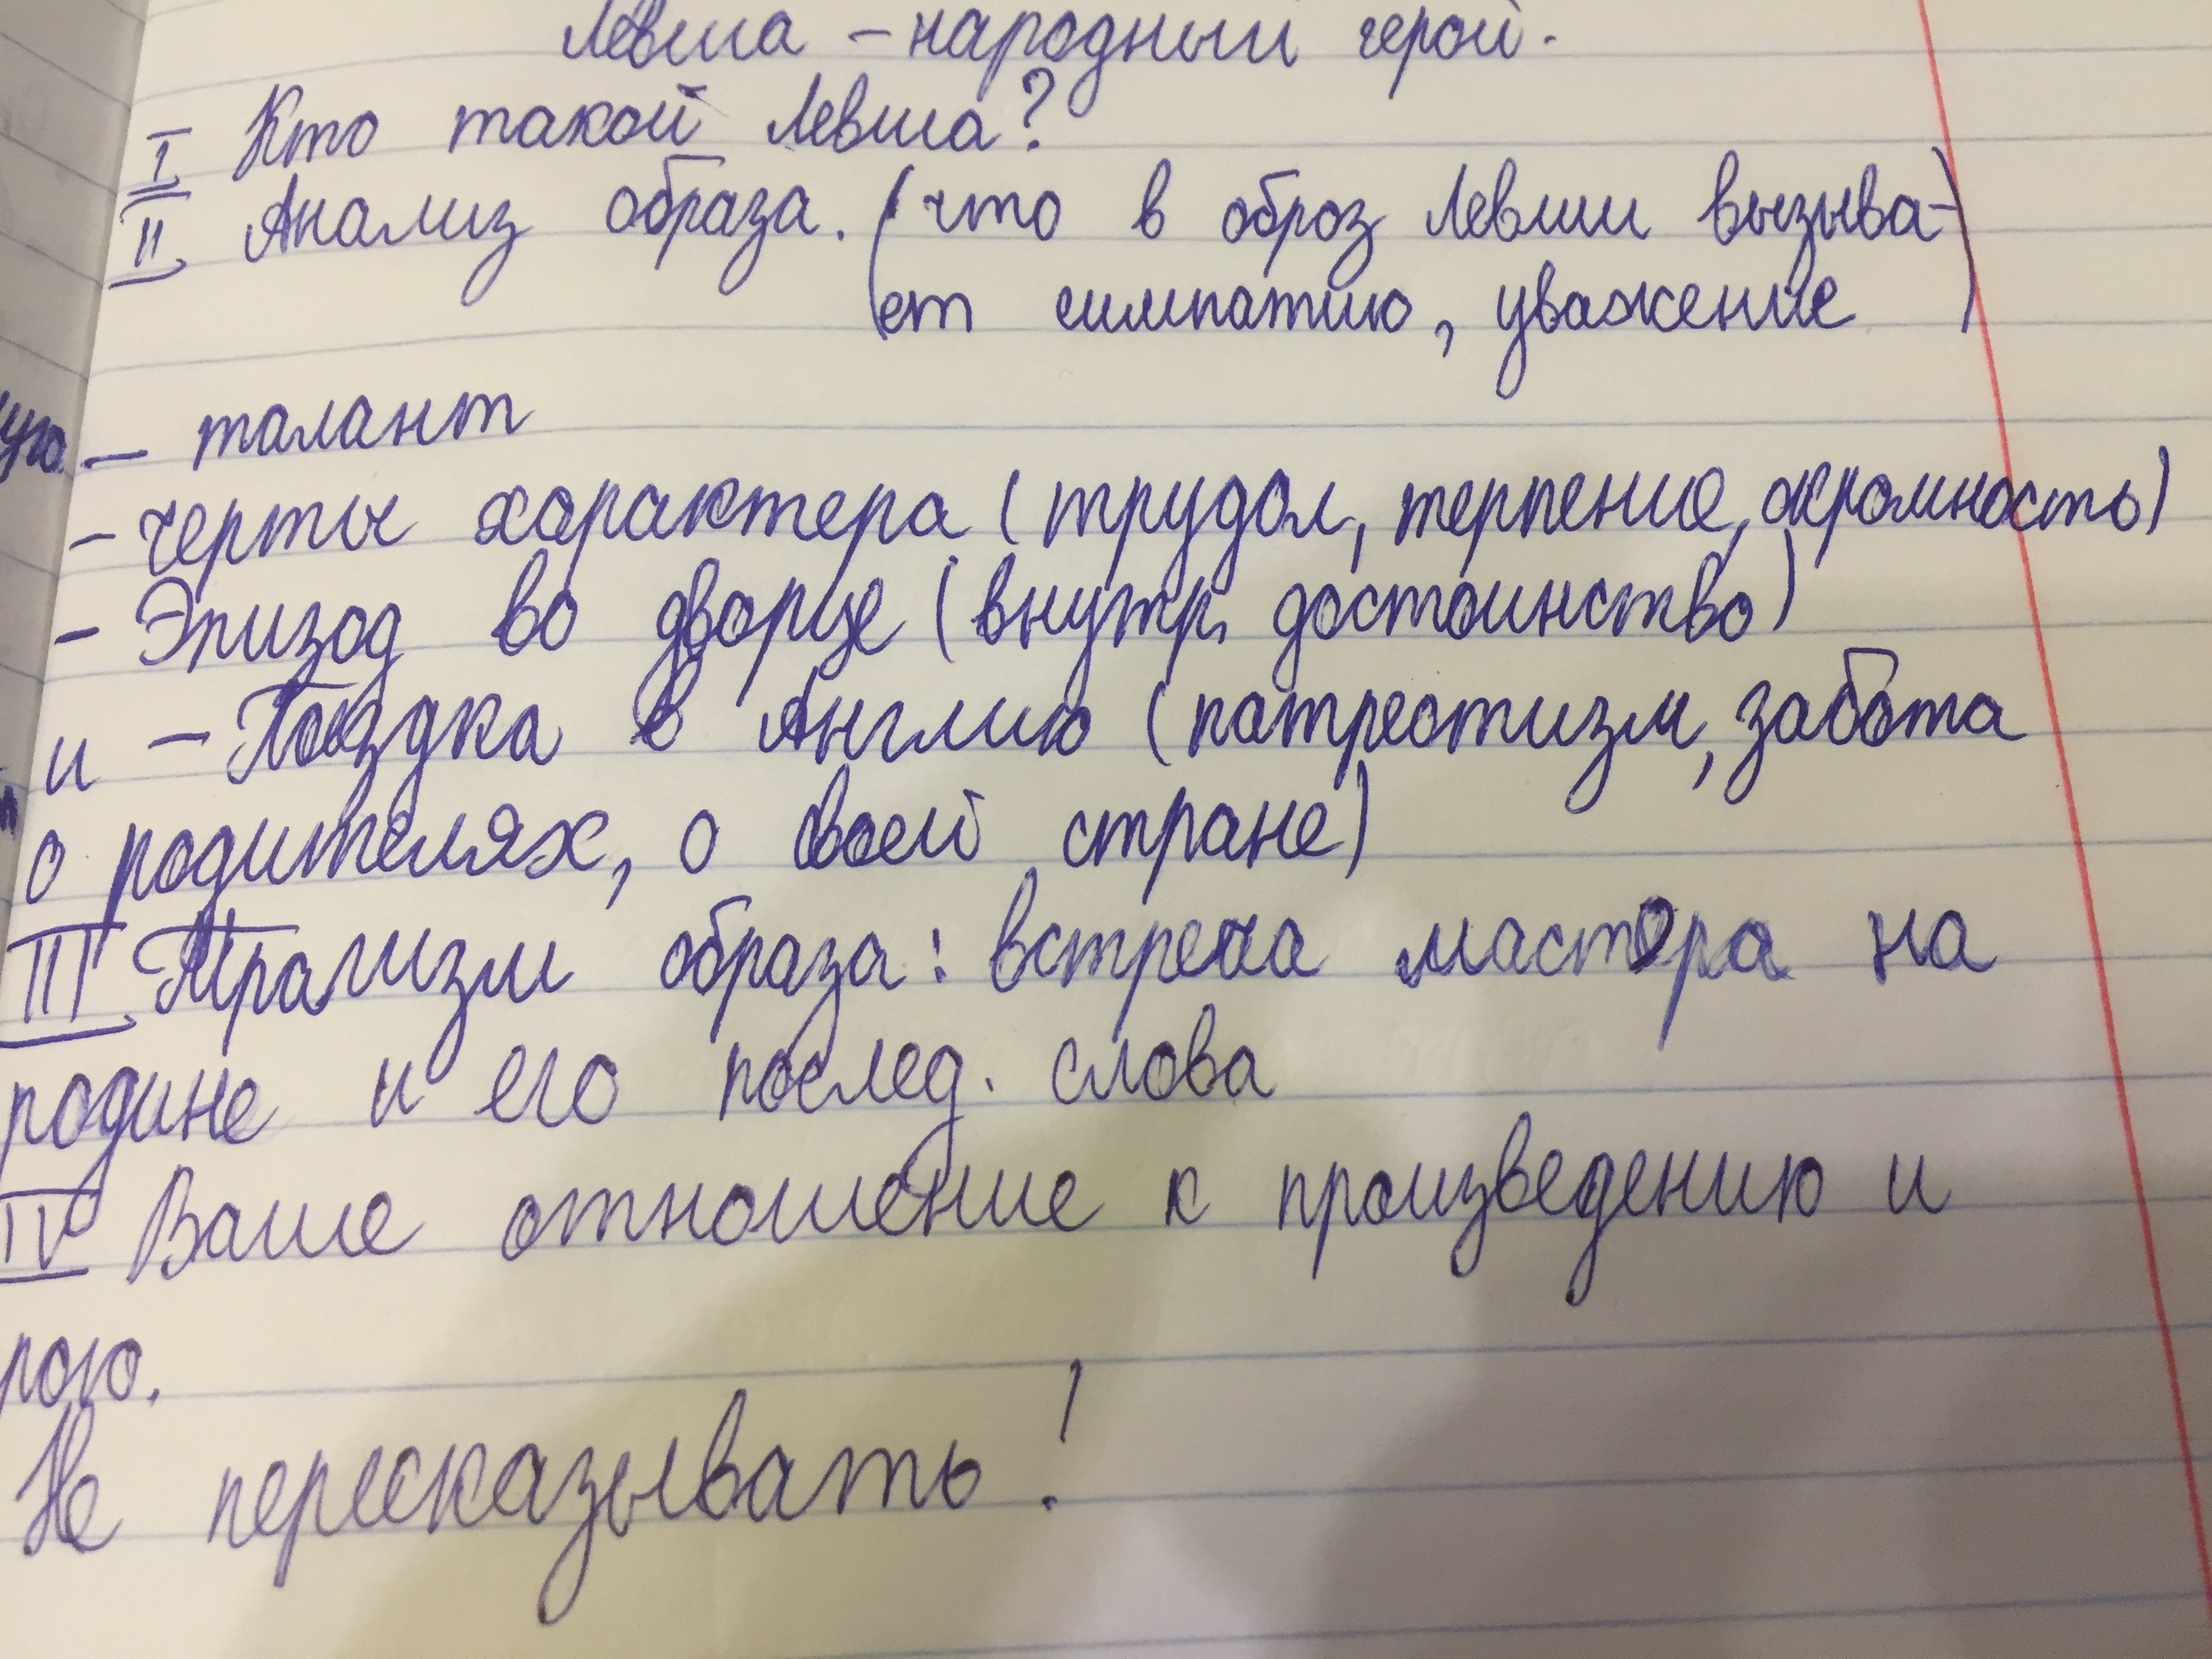 Левша – народный герой.
I Кто такой Левша?
II Анализ образа. (что в образ Левши вызыва-
ет симпатию, уважение)
– талант
– черты характера (трудол, терпение, скромность)
– Эпизод во дворце (внутр. достоинство)
и – Поездка в Англию (патреотизм, забота
о родителях, о своей стране)
III Трагизм образа: встреча мастера на
родине и его послед. слова
IV Ваше отношение к произведению и
рою.
Не пересказывать!